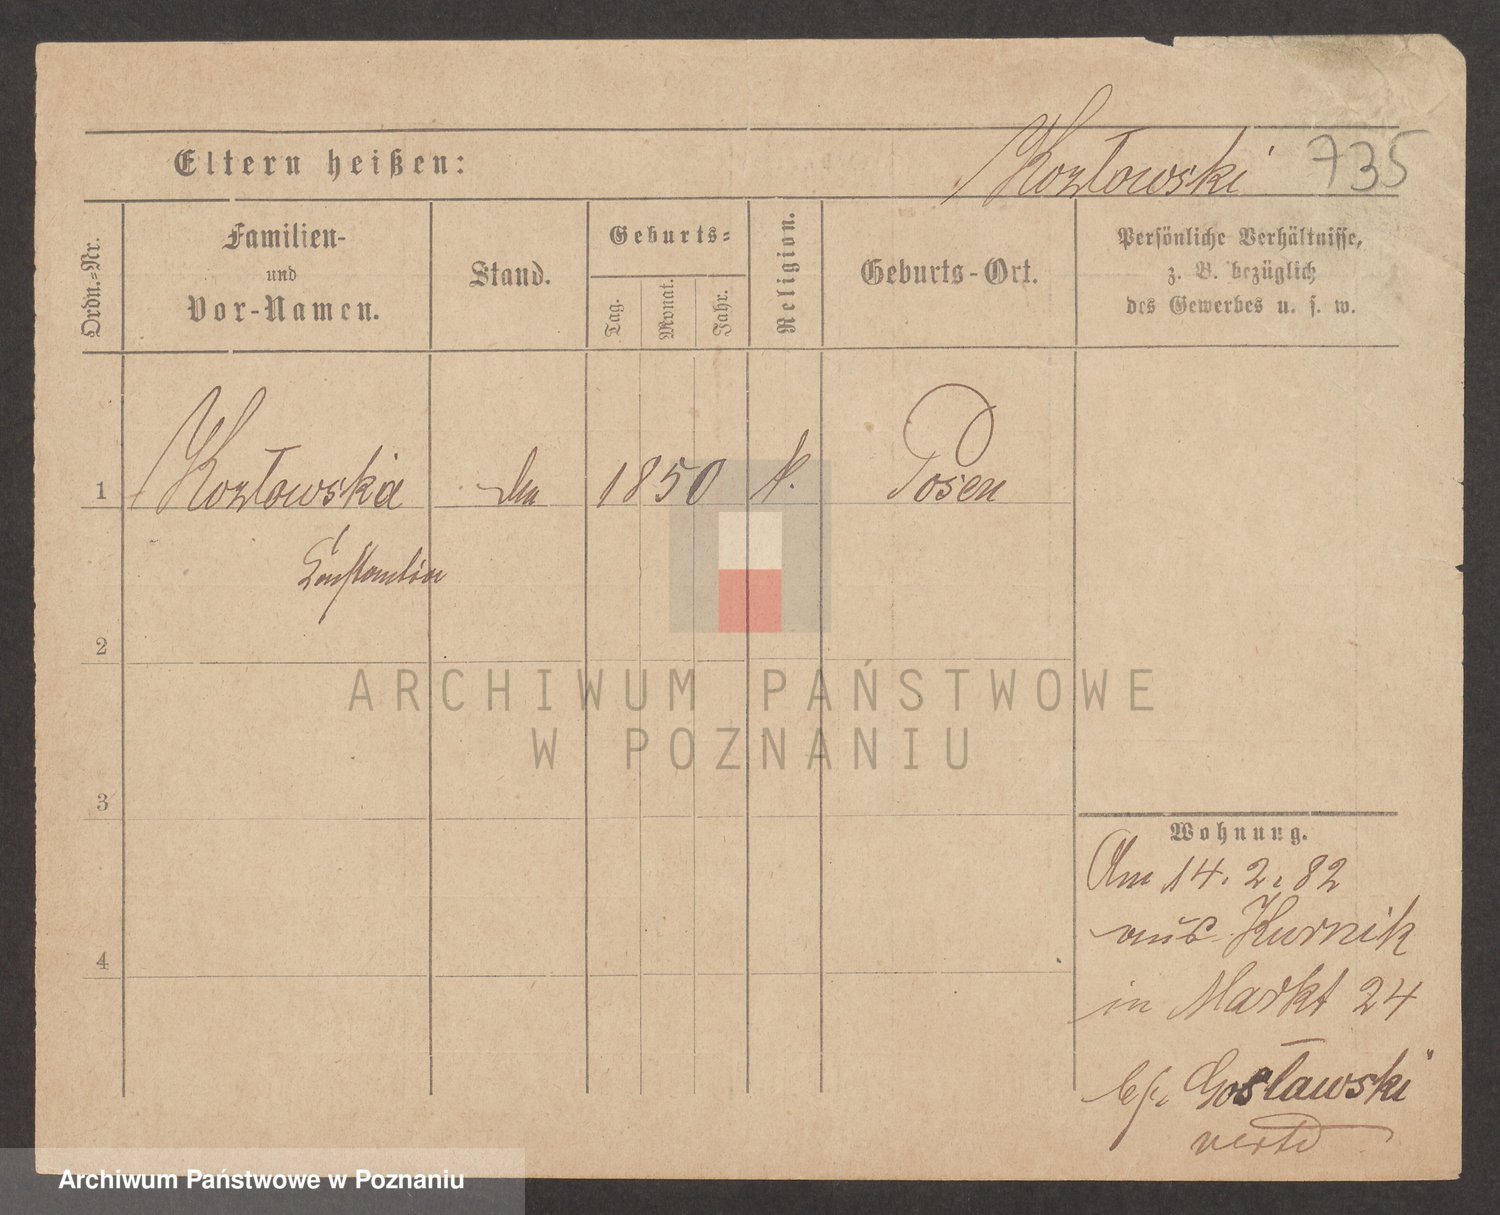 Eltern heißen: Kozłowski 735
Ordn.-Nr.
Familien-
und
Vor-Namen.
Stand.
Geburts-
Tag.
Monat.
Jahr.
Religion.
Geburts-Ort.
Persönliche Verhältnisse,
z. B. bezüglich
des Gewerbes u. s. w.
1 Kozłowska 1850 k. Posen
2
ARCHIWUM PAŃSTWOWE
W POZNANIU
3
4
Wohnung.
Am 14. 2. 82
aus Kurnik
in Markt 24
Gosławski
verte
Archiwum Państwowe w Poznaniu